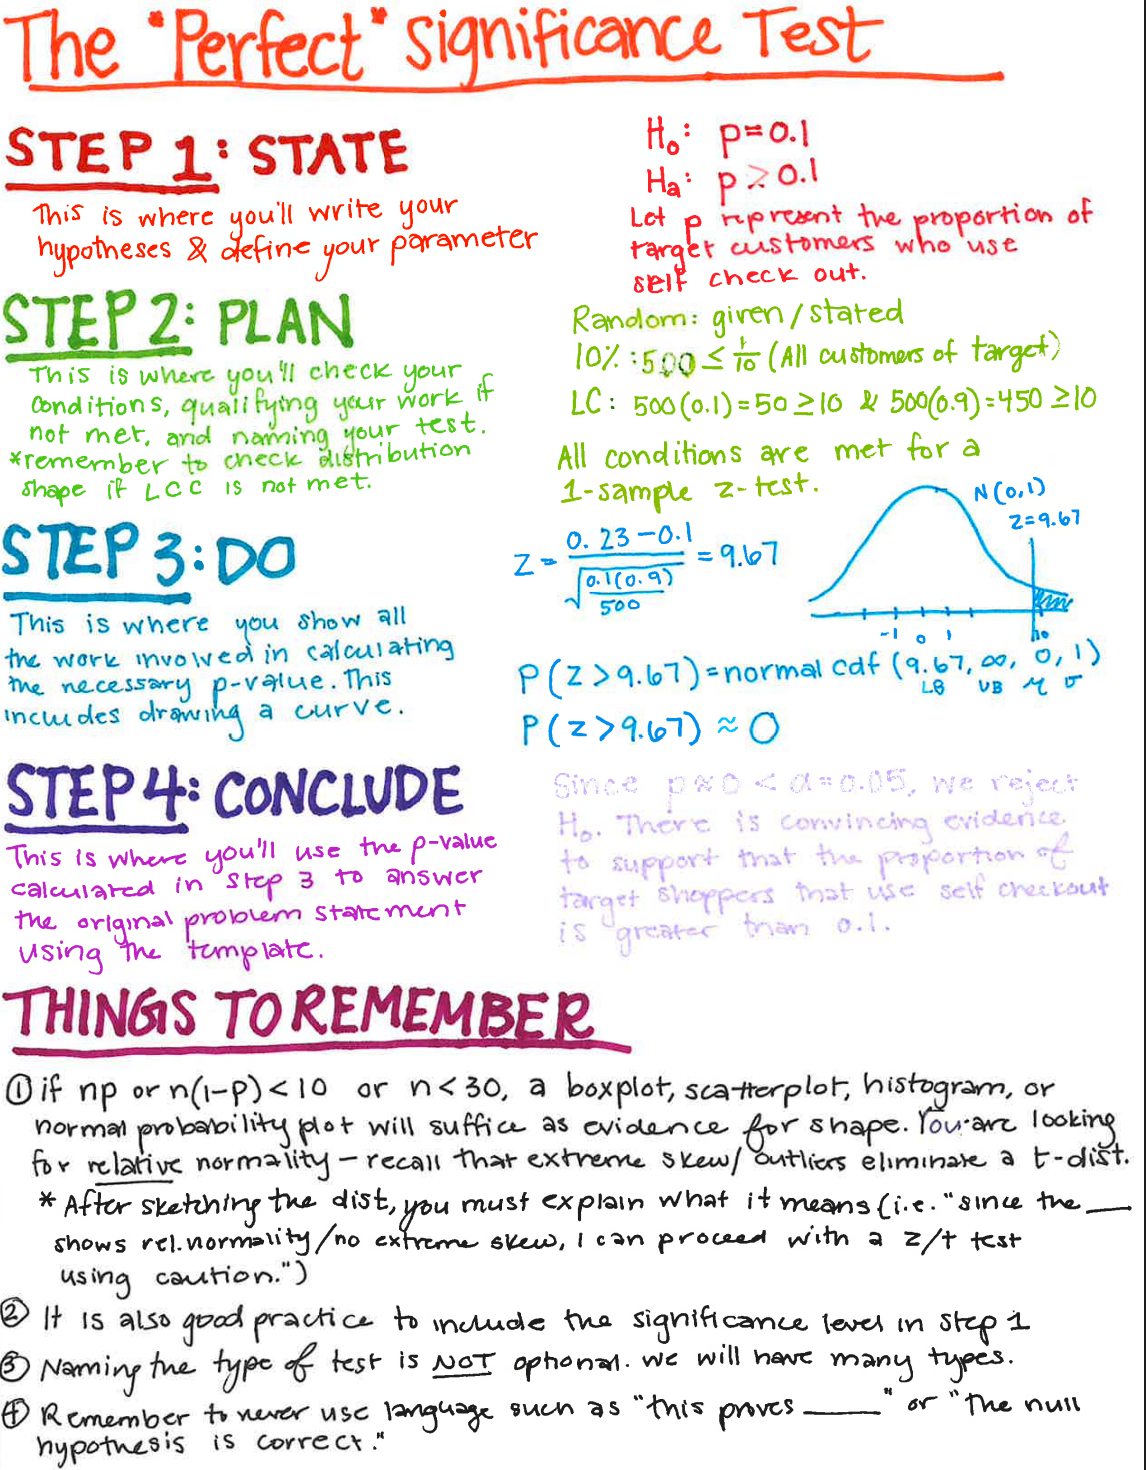 The "Perfect" Significance Test
STEP 1: STATE
This is where you'll write your
hypotheses & define your parameter
H₀: p=0.1
Hₐ: p > 0.1
Let p represent the proportion of
target customers who use
self check out.
STEP 2: PLAN
This is where you'll check your
conditions, qualifying your work if
not met, and naming your test.
*remember to check distribution
shape if LCC is not met.
Random: given/stated
10%: 500 ≤ 1/10 (All customers of target)
LC: 500(0.1)=50 ≥10 & 500(0.9)=450 ≥10
All conditions are met for a
1-sample z-test.
STEP 3: DO
This is where you show all
the work involved in calculating
the necessary p-value. This
includes drawing a curve.
z = (0.23-0.1)/√(0.1(0.9)/500) = 9.67
N(0,1)
z=9.67
-1 0 1 10
P(z>9.67)=normal cdf (9.67, ∞, 0, 1)
LB UB μ σ
P(z>9.67) ≈ 0
STEP 4: CONCLUDE
This is where you'll use the p-value
calculated in step 3 to answer
the original problem statement
using the template.
Since p≈0 < α=0.05, we reject
H₀. There is convincing evidence
to support that the proportion of
target shoppers that use self checkout
is greater than 0.1.
THINGS TO REMEMBER
① if np or n(1-p)<10 or n<30, a boxplot, scatterplot, histogram, or
normal probability plot will suffice as evidence for shape. You are looking
for relative normality – recall that extreme skew/outliers eliminate a t-dist.
* After sketching the dist, you must explain what it means (i.e. "since the ___
shows rel. normality/no extreme skew, I can proceed with a z/t test
using caution.")
② It is also good practice to include the significance level in step 1
③ Naming the type of test is NOT optional. we will have many types.
④ Remember to never use language such as "this proves _____" or "The null
hypothesis is correct."